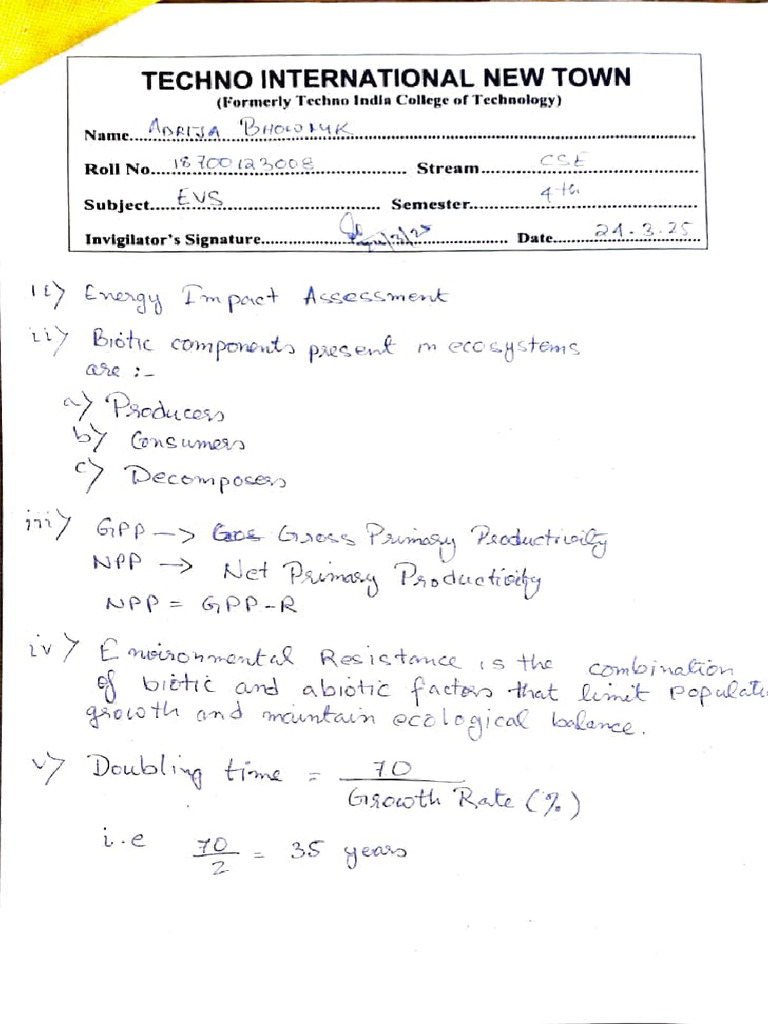 TECHNO INTERNATIONAL NEW TOWN
(Formerly Techno India College of Technology)
Name... ADRIJA BHOWMIK
Roll No... 18700123008 Stream... CSE
Subject... EVS Semester... 4th
Invigilator's Signature... Date... 24.3.25
i) Energy Impact Assessment
ii) Biotic components present in ecosystems
are :-
a) Producers
b) Consumers
c) Decomposers
iii) GPP → Gross Primary Productivity
NPP → Net Primary Productivity
NPP = GPP-R
iv) Environmental Resistance is the combination
of biotic and abiotic factors that limit populati
growth and maintain ecological balance.
v) Doubling time = 70
Growth Rate (%)
i.e 70/2 = 35 years